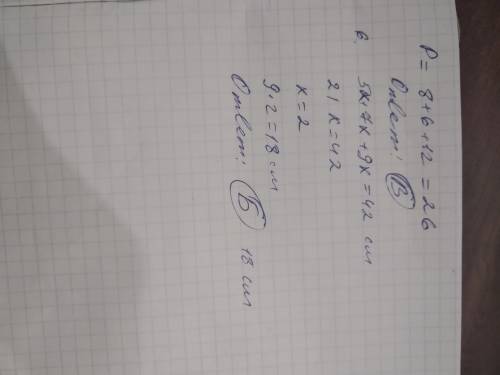 P = 8+6+12 = 26
Ответ: В
6. 5x+7x+9x = 42 см
21x = 42
x = 2
9·2 = 18 см
Ответ: Б 18 см